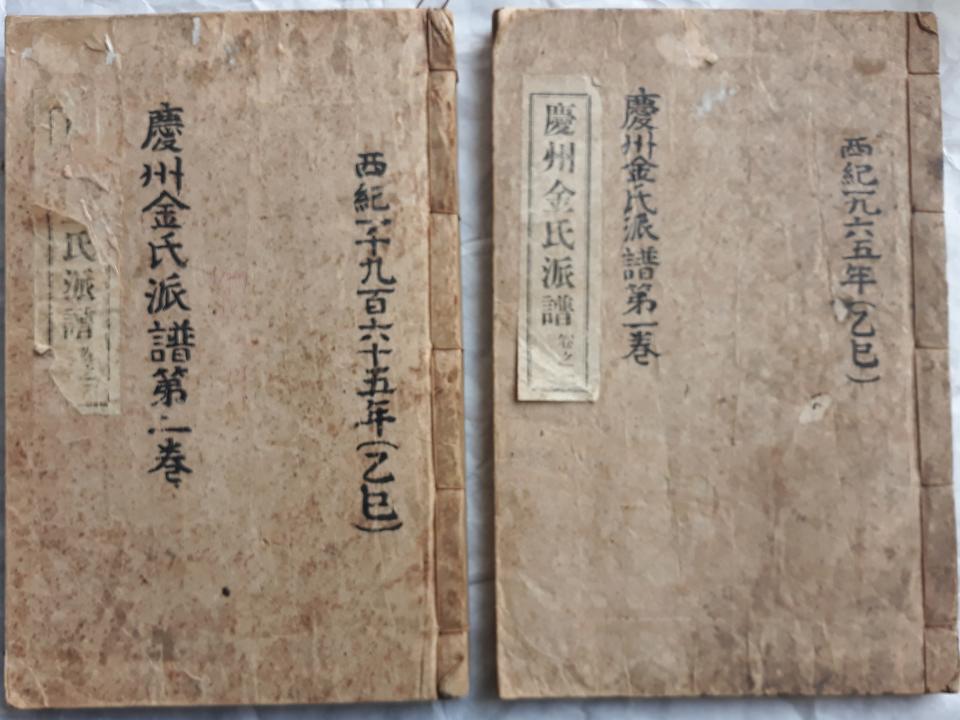 西紀一千九百六十五年(乙巳)
慶州金氏派譜第二卷
氏派譜
西紀一九六五年(乙巳)
慶州金氏派譜第一卷
慶州金氏派譜 卷之一